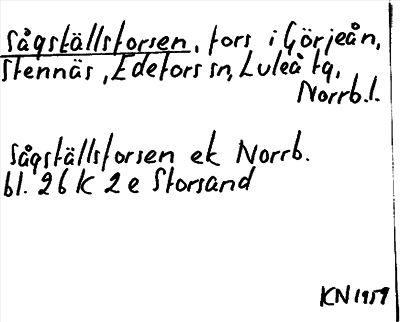 Sågställsforsen, fors i Görjeån,
Stennäs, Edefors sn, Luleå tg,
Norrb.l.
Sågställsforsen ek Norrb.
bl. 26 K 2 e Storsand
KN 1959